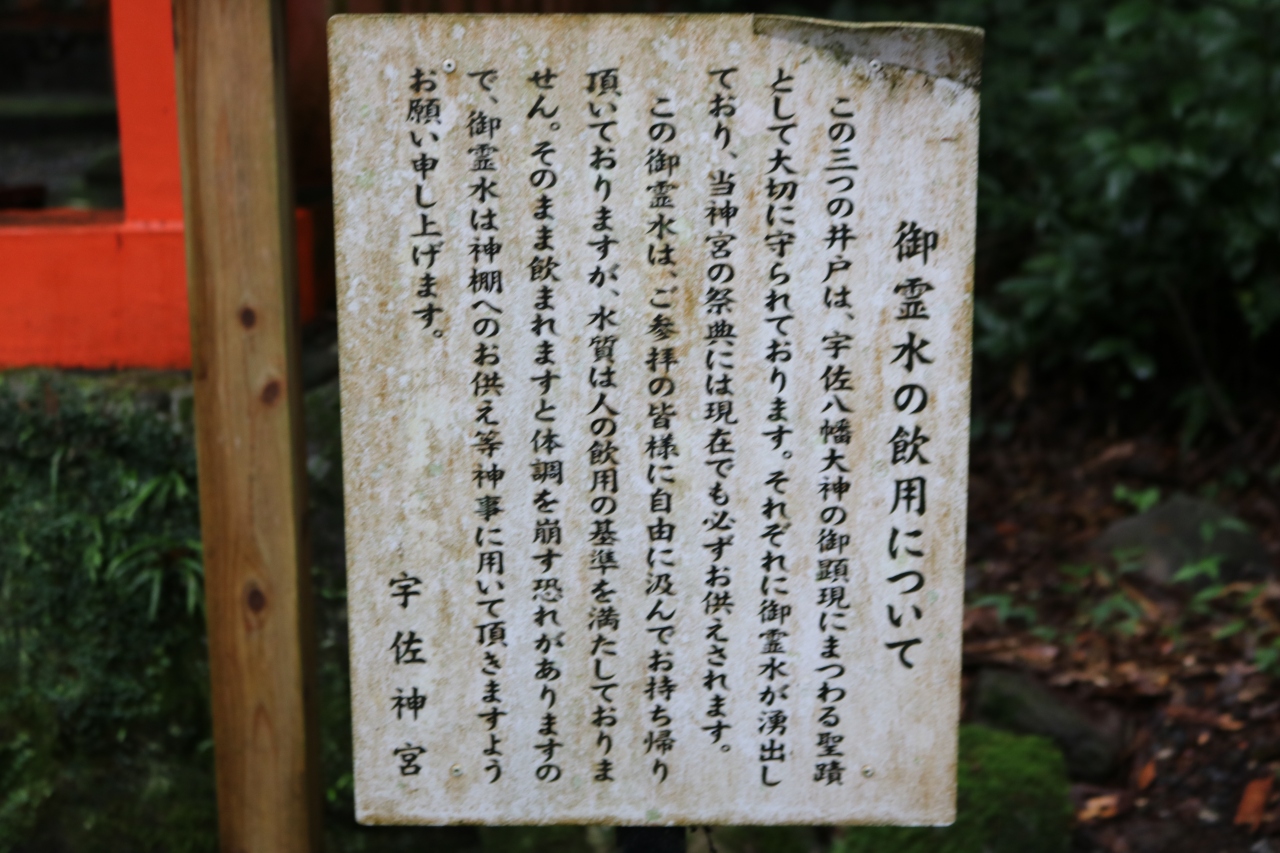 御霊水の飲用について
この三つの井戸は、宇佐八幡大神の御顕現にまつわる聖蹟
として大切に守られております。それぞれに御霊水が湧出し
ており、当神宮の祭典には現在でも必ずお供えされます。
この御霊水は、ご参拝の皆様に自由に汲んでお持ち帰り
頂いておりますが、水質は人の飲用の基準を満たしておりま
せん。そのまま飲まれますと体調を崩す恐れがありますの
で、御霊水は神棚へのお供え等神事に用いて頂きますよう
お願い申し上げます。
宇佐神宮